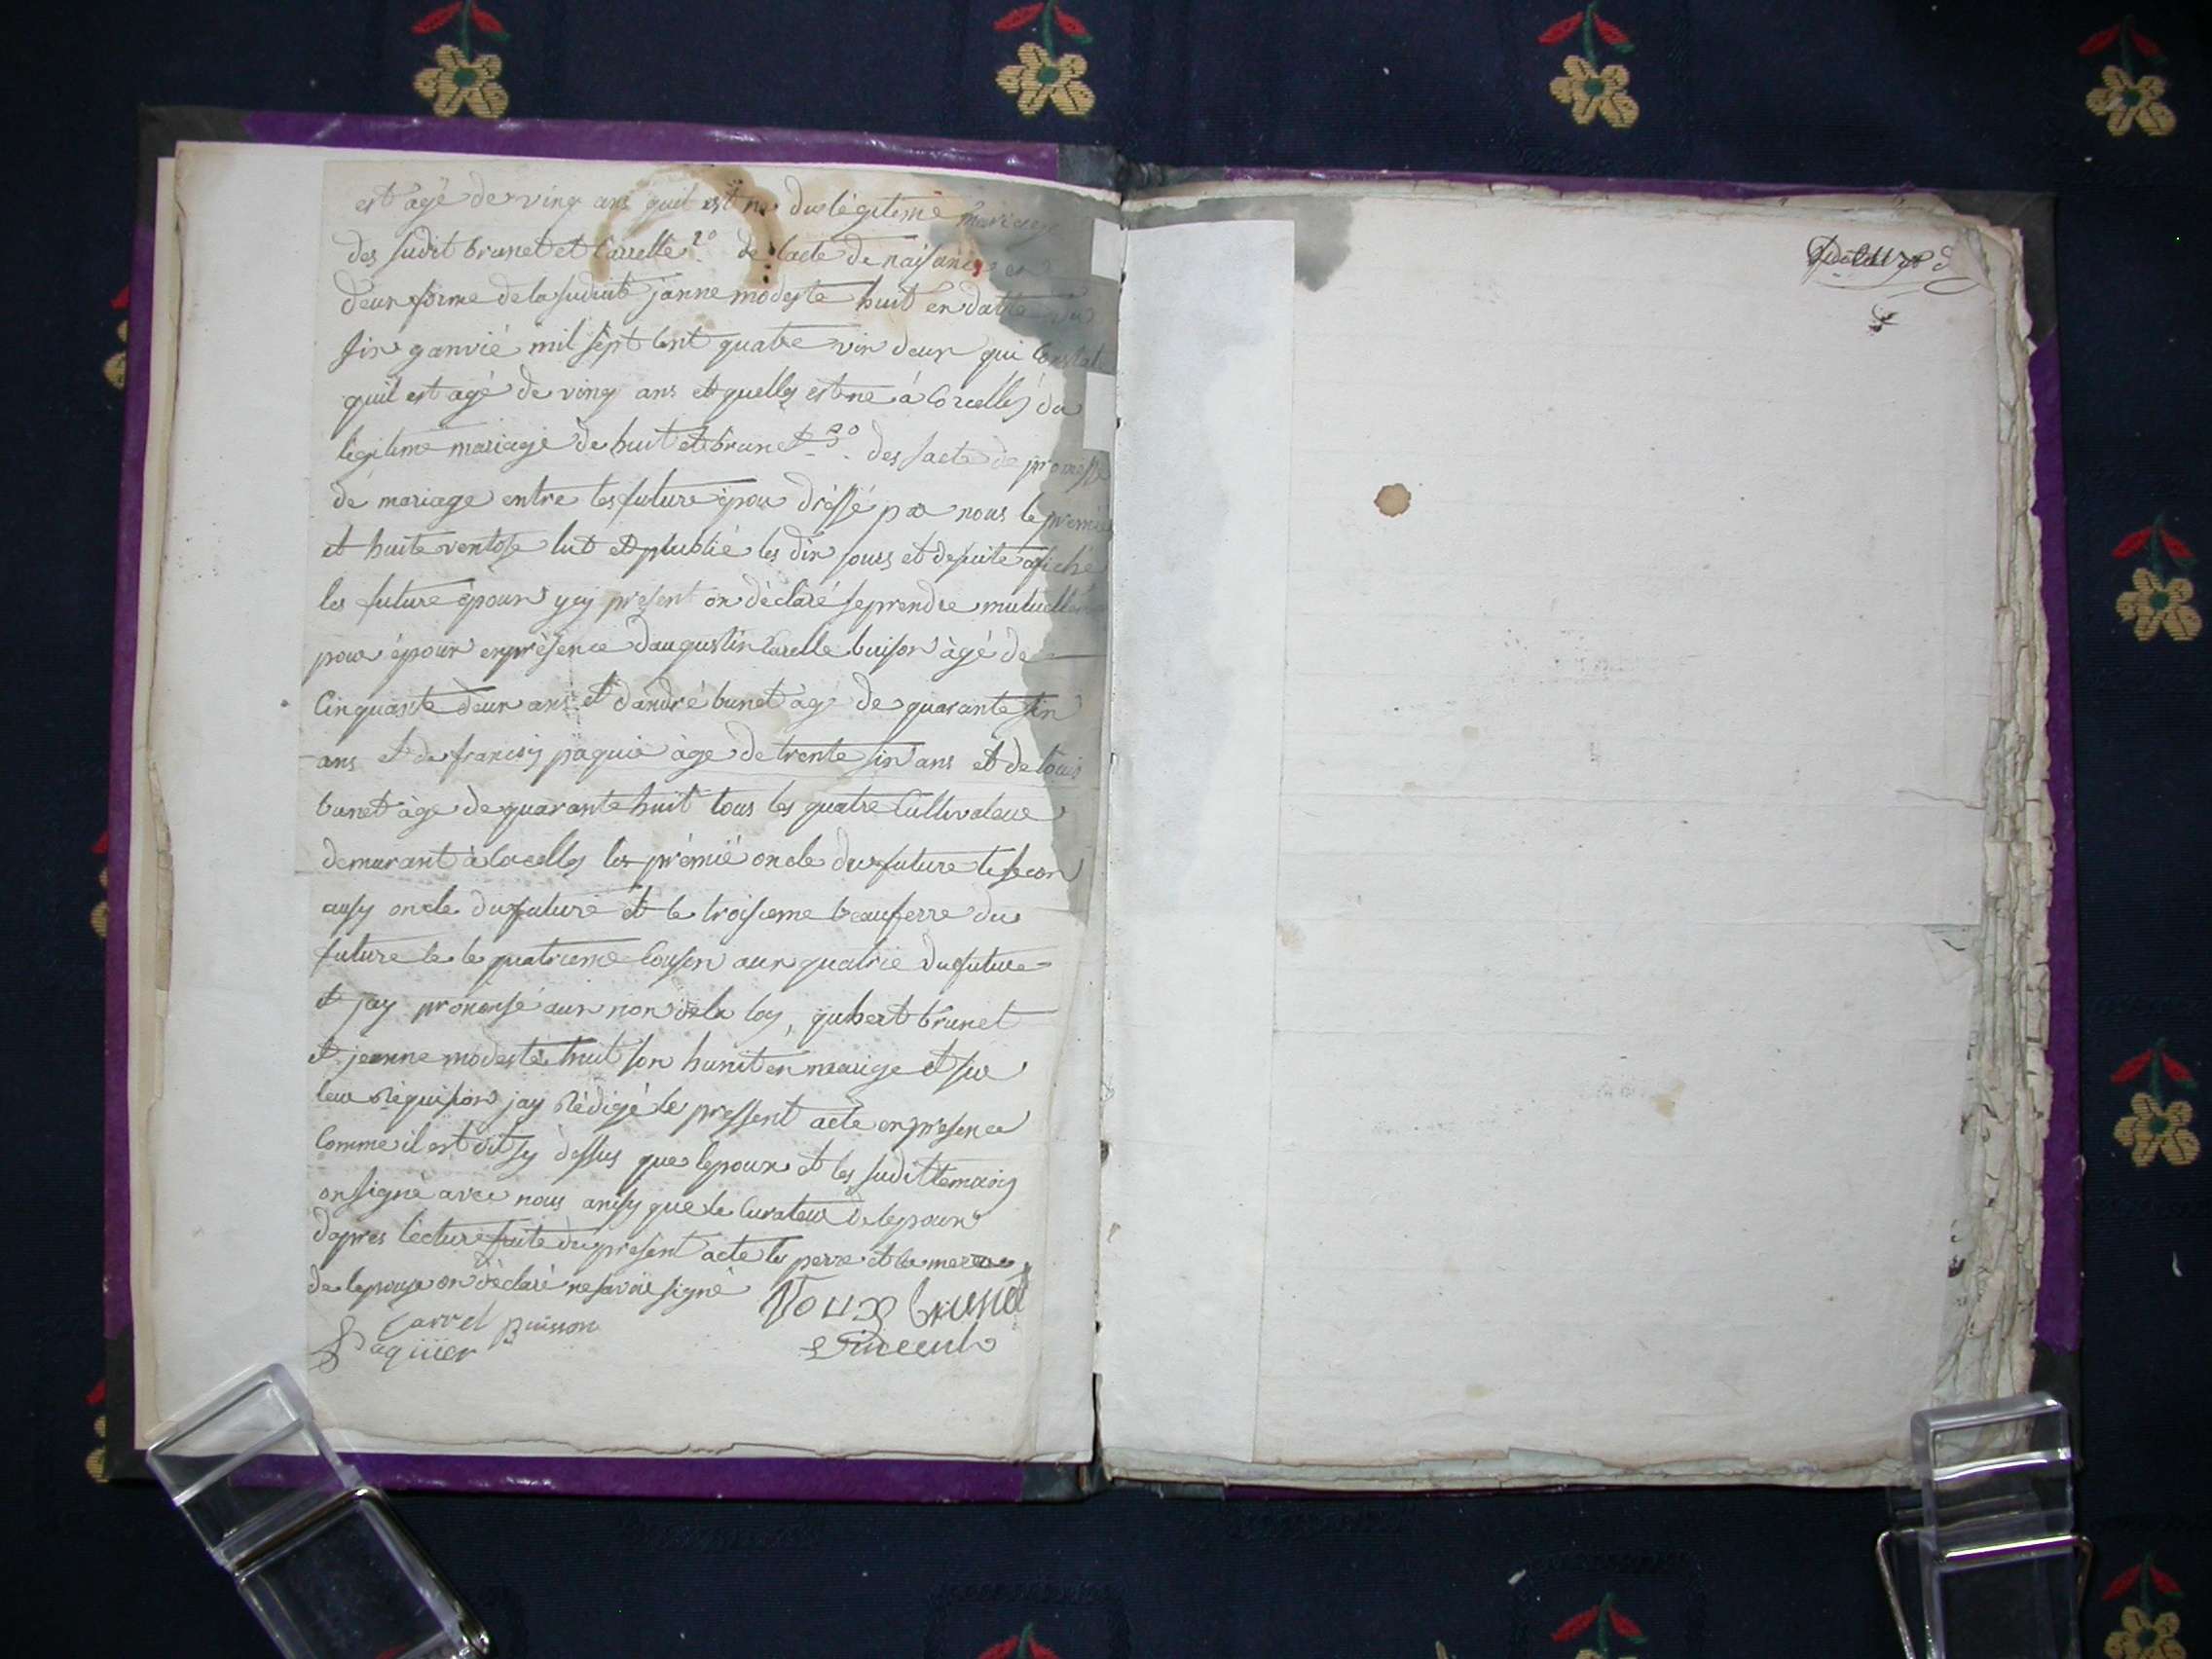 est agé de ving ans quil est né du légitime mariage
des sudit brunet et Carrelle 2° de lacte de naisance en
deux forme de la sudite janne modeste huit en datte du
six ganvié mil sept cent quatre vin deux qui Constat
quil est agé de ving ans et quelles est né à Corcelles du
légitime mariage de huit et brunet 3° des sacte de promesse
de mariage entre les future épou dréssé par nous le premié
et huite ventose lut et plublié les dix jours et de suite afiché
les future épour yçy present on déclaré se prendre mutuellem
pour épour en présence daugustin Carelle buison àgé de
Cinquante deux ans et dandré bunet àgé de quarante sin
ans et de francois paquie àge de trente sin ans et de louis
bunet àge de quarante huit tous les quatre Cultivateur
demurant à Cocelles les prémié oncle du future le secon
ausy oncle du future et le troisieme beauferre du
future le le quatrieme Cousen aux quatrie du future
et jay prononsé aux non de la loy, qubert brunet
et jeanne modeste huit son hunit en mariage et sur
leur réquision jay rédigé le pressent acte en presence
Comme il est dit sy dessus que lepoux et les sudit temoins
on signé avec nous ansy que le Curateur de lepoux
dapres lecture faite du présent acte les perre et la merre
de lepouse on déclaré ne savoir signé
Carrel puisson
Paquier